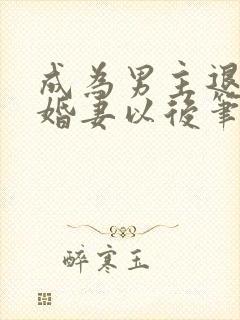 成為男主退
婚妻以後筆
醉寒玉